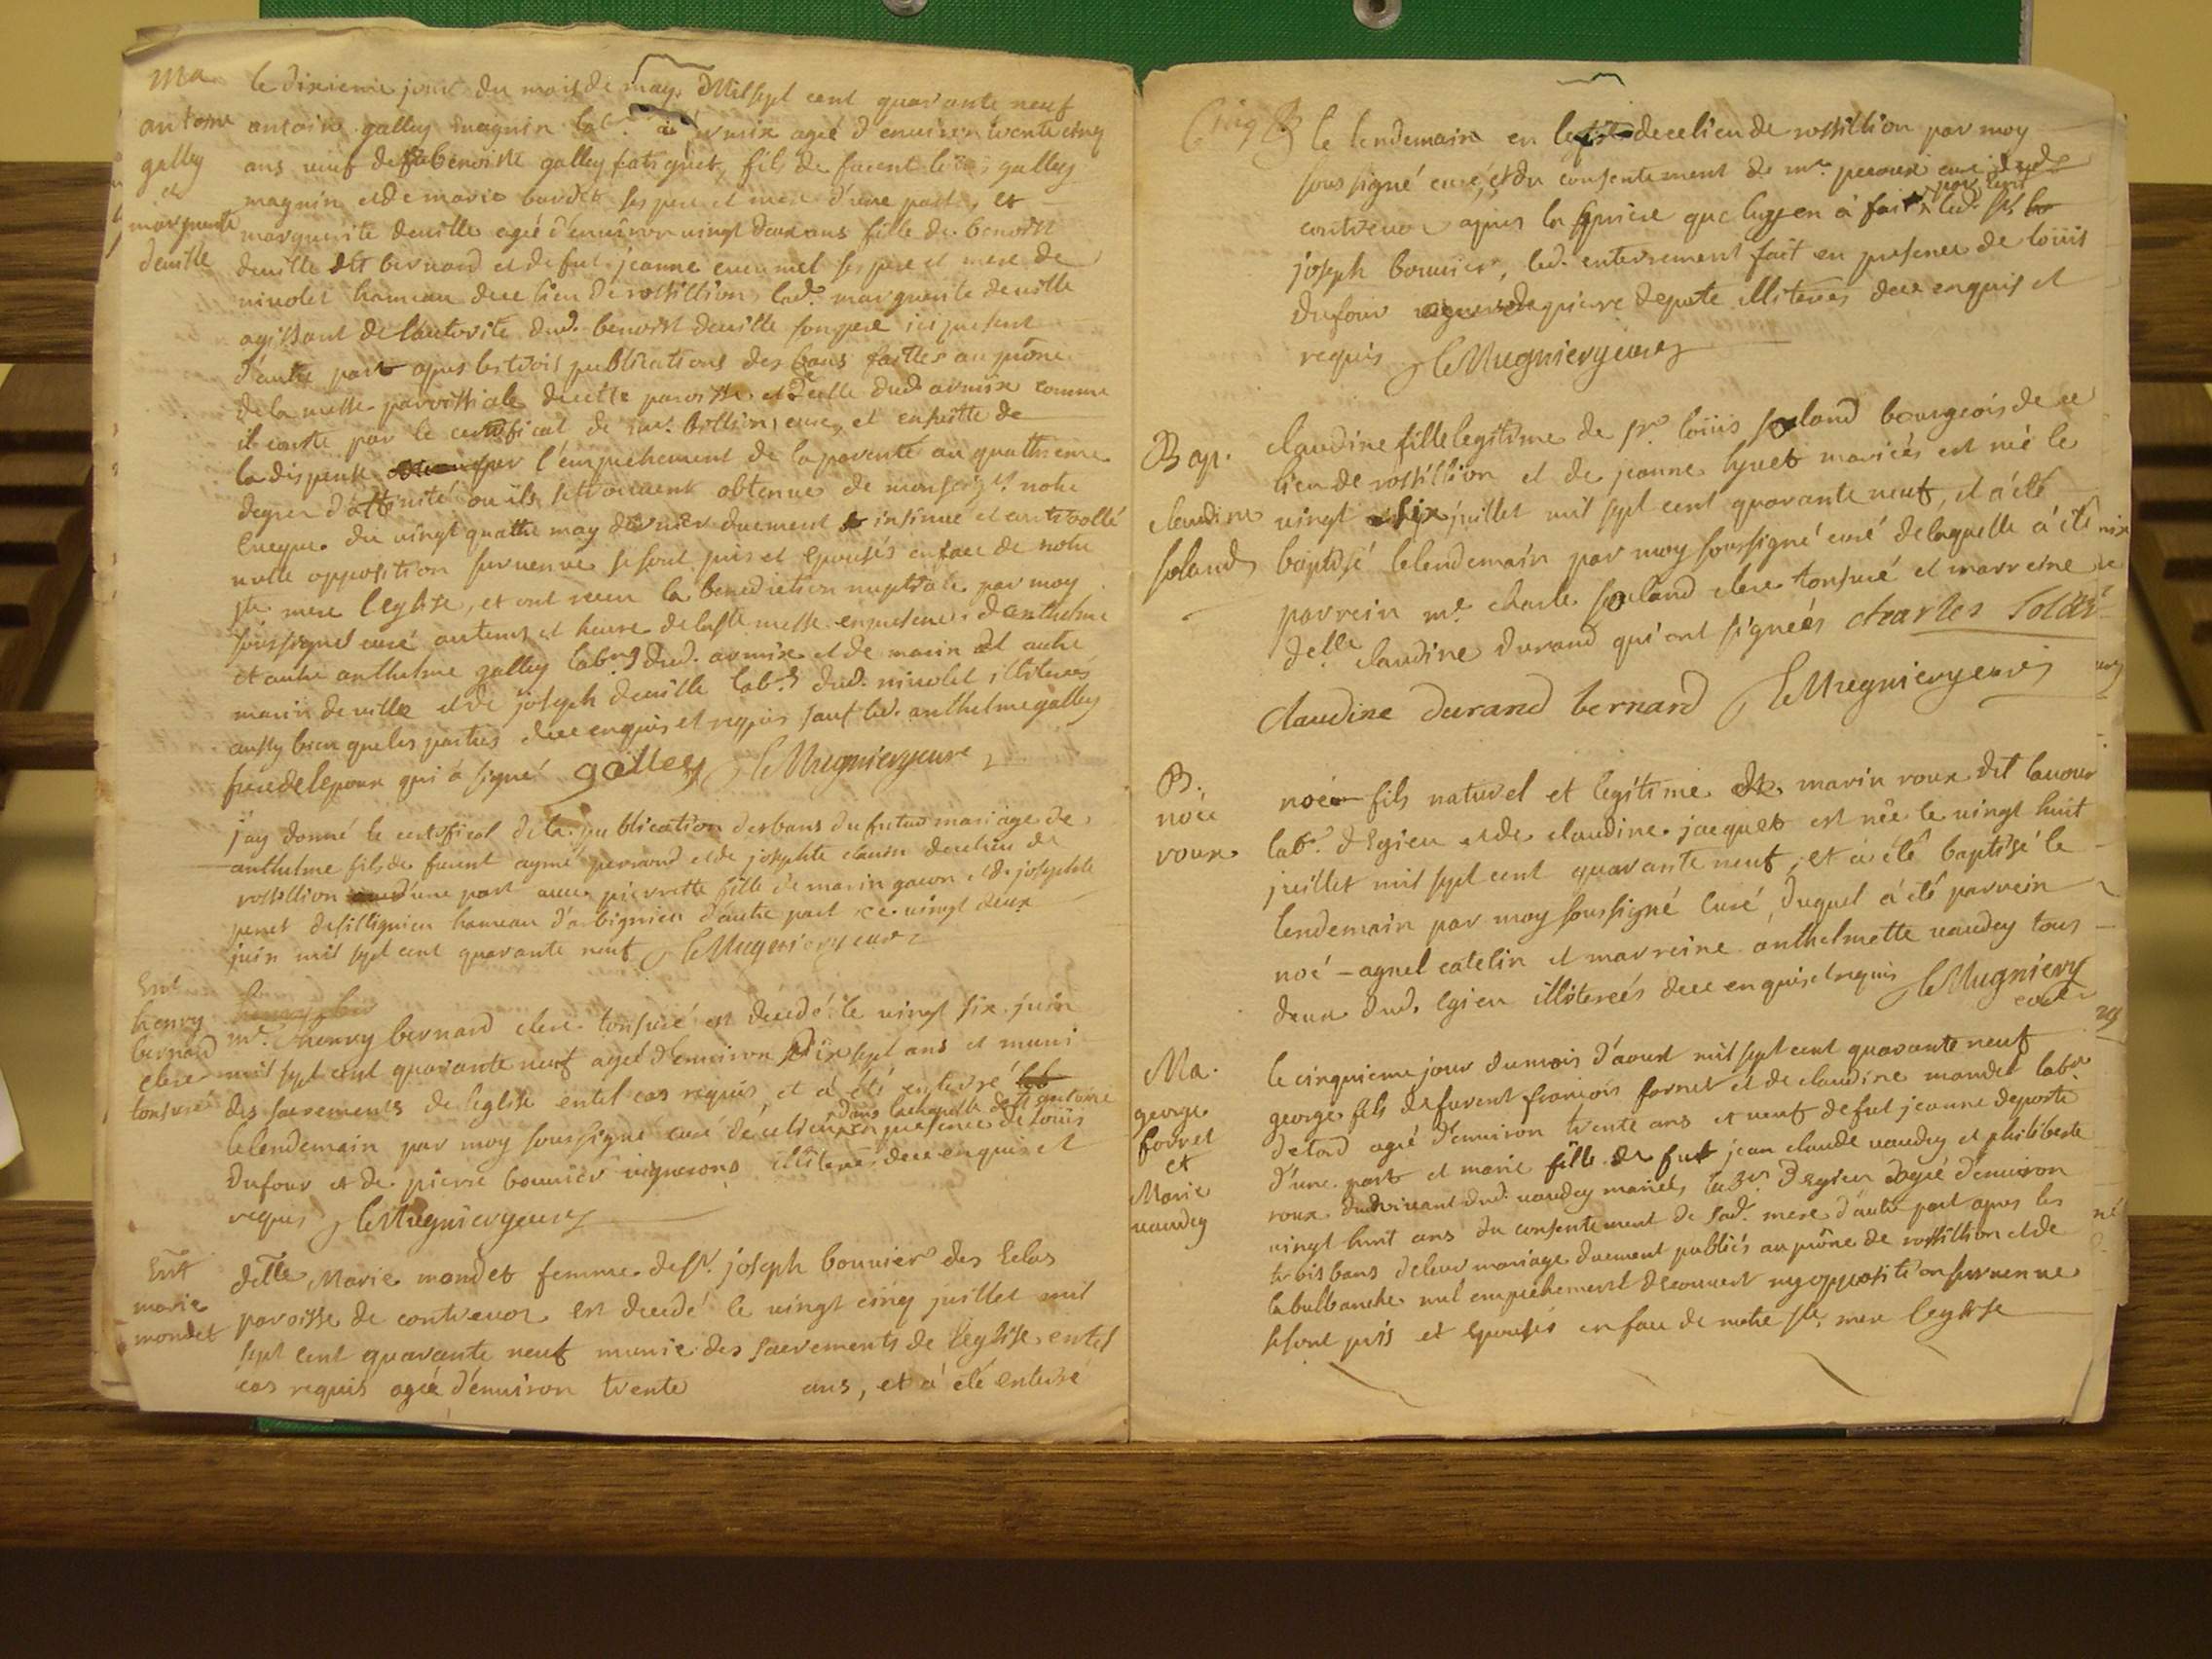 Ma
antoine
galley
et
marguerite
deville
le dixieme jour du mois de may Mil sept cent quarante neuf
antoine galley magnin lab.r à armix agé d'environ trente cinq
ans veuf de benoiste galley fatiguet, fils de furent galley
magnin et de marie bardet ses pere et mere d'une part, et
marguerite deuille agée d'environ vingt deux ans fille de benoist
deuille dit bernard et de fut jeanne ses pere et mere de
niuolet hameau de ce lieu de rossillion, lad.e marguerite deuille
agissant de l'autorité dud. benoist deuille son pere ici present
d'autre part apres les trois publications des bans faittes au prône
de la messe parroissiale de cette paroisse et de celle dud. armix comme
il conste par le certificat de curé, et ensuitte de
la dispense sur l'empechement de la parenté au quattrieme
degrez d'affinité ou ils se trouuent obtenue de monseig.r notre
Eueque du vingt quattre may dernier duement insinué et controllé
nulle opposition suruenue se sont pris et epousés en face de notre
ste mere l'eglise, et ont receu la benediction nuptiale par moy
soussigné curé au tems et heure de la ste messe en presence d'anthelme
et autre anthelme galley lab.rs dud. armix et de marin et autre
marin deuille et de joseph deuille lab.rs dud. niuolet illiterés
aussy bien que les parties de ce enquis et requis sauf led. anthelme galley
frere de l'epoux qui à signé galley
j'ay donné le certificat de la publication des bans du futur mariage de
anthelme fils de furent aymé perraud et de josephte clauin de ce lieu de
rossillion d'une part auec pierrette fille de marin gacon et de josephte
perret de sillignieu hameau d'arbignieu d'autre part ce vingt deux
juin mil sept cent quarante neuf
Ent
henry
bernard
clerc
tonsuré
m.e henry bernard clerc tonsuré est decedé le vingt six juin
mil sept cent quarante neuf agé d'enuiron dix sept ans et muni
des sacrements de l'eglise en tel cas requis, et à été enterré
dans la chapelle de st antoine
le lendemain par moy soussigné curé de ce lieu en presence de loüis
Dufour et de pierre bouuier vignerons illiterés de ce enquis et
requis
Ent
marie
mondet
delle Marie mondet femme de sr. joseph bouuier des
paroisse de contreuoz est decedé le vingt cinq juillet mil
sept cent quarante neuf munie des sacrements de l'eglise en tel
cas requis agée d'enuiron trente ans, et à été enterré
Cinq
le lendemain en de ce lieu de rossillion par moy
soussigné curé, et du consentement de m.re curé dud.
contreuoz apres la priere que luy en à fait par ecrit led. sr.
joseph bouuier, led. enterrement fait en presence de loüis
Dufour de pierre deporte illiterés de ce enquis et
requis
Bap.
claudine
soland
claudine fille legitime de sr. loüis soland bourgeois de ce
lieu de rossillion et de jeanne mariés est née le
vingt six juillet mil sept cent quarante neuf, et à été
baptisé le lendemain par moy soussigné curé de laquelle à été
parrein m.e charle soland clerc tonsuré et marreine
delle claudine durand qui ont signés charles Soland
claudine durand bernard
B.
noé
roux
noé fils naturel et legitime de marin roux dit lauour
lab.r d'Egieu et de claudine jacquet est né le vingt huit
juillet mil sept cent quarante neuf, et à été baptisé le
lendemain par moy soussigné curé, duquel à été parrein
noé agnel catelin et marreine anthelmette vaudey tous
deux dud. Egieu illiterés de ce enquis et requis
curé
Ma.
george
fornet
et
Marie
vaudey
le cinquieme jour du mois d'aoust mil sept cent quarante neuf
george fils de furent françois fornet et de claudine mondet lab.r
agé d'enuiron trente ans et veuf de fut jeanne deporte
d'une part et marie fille de fut jean claude vaudey et philiberte
roux du viuant dud. vaudey mariés lab.rs d'Egieu agée d'enuiron
vingt huit ans du consentement de sad. mere d'autre part apres les
trois bans de leur mariage duement publiés au prône de rossillion et de
la burbanche nul empechement decouuert ny opposition suruenue
se sont pris et epousés en face de notre ste. mere l'eglise